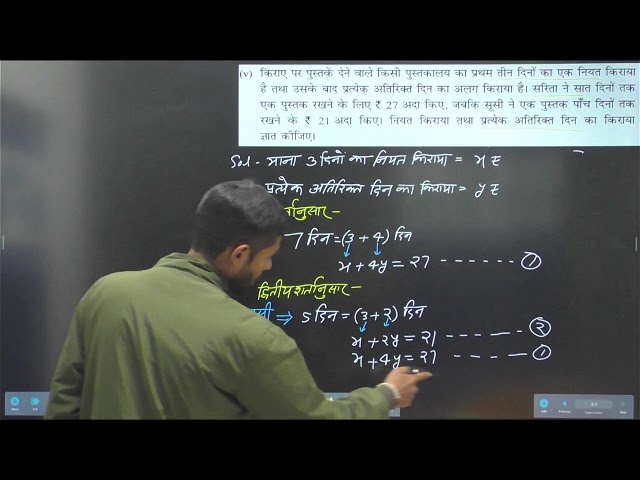 (v) किराए पर पुस्तकें देने वाले किसी पुस्तकालय का प्रथम तीन दिनों का एक नियत किराया
है तथा उसके बाद प्रत्येक अतिरिक्त दिन का अलग किराया है। सरिता ने सात दिनों तक
एक पुस्तक रखने के लिए ₹ 27 अदा किए, जबकि सूसी ने एक पुस्तक पाँच दिनों तक
रखने के ₹ 21 अदा किए। नियत किराया तथा प्रत्येक अतिरिक्त दिन का किराया
ज्ञात कीजिए।
Sol - माना 3 दिनों का नियत किराया = x ₹
प्रत्येक अतिरिक्त दिन का किराया = y ₹
र्तानुसार -
7 दिन = (3 + 4) दिन
x + 4y = 27 ------ ①
द्वितीय शर्तानुसार -
⇒ 5 दिन = (3 + 2) दिन
x + 2y = 21 ---- ②
x + 4y = 27 ---- ①